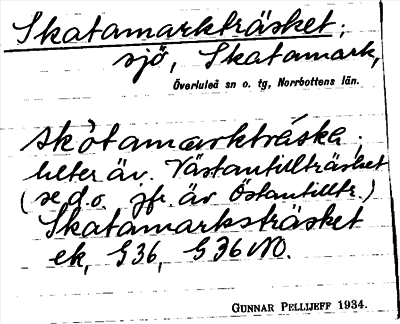 Skatamarkträsket;
sjö, Skatamark,
Överluleå sn o. tg, Norrbottens län.
skòtamarktráska;
heter äv. Västantillträsket
(se d.o. jfr. äv Östantilltr.)
Skatamarksträsket
ek, G36, G36 NO.
GUNNAR PELLIJEFF 1934.